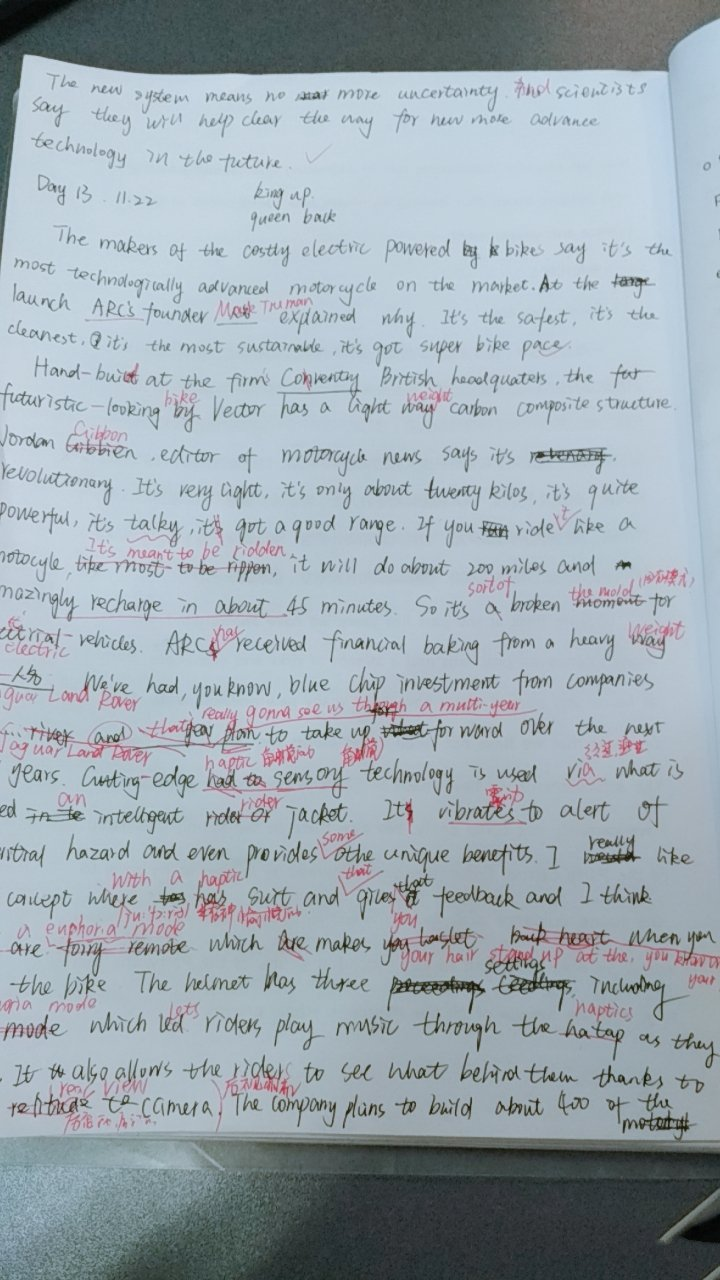 The new system means no more uncertainty. And scientists
say they will help clear the way for new more advance
technology in the future.
Day 13. 11.22
king up.
queen back
The makers of the costly electric powered bikes say it's the
most technologically advanced motorcycle on the market. At the
launch ARC's founder Mark Truman explained why. It's the safest, it's the
cleanest, it's the most sustainable, it's got super bike pace.
Hand-built at the firm's Conventry British headquaters, the
futuristic-looking bike by Vector has a light weight way carbon composite structure.
Jordan Gibbon, editor of motorcycle news says it's
revolutionary. It's very light, it's only about twenty kilos, it's quite
powerful, it's talky, it's got a good range. If you ride it like a
motocyle, It's meant to be ridden like most to be rippen, it will do about 200 miles and
mazingly recharge in about 45 minutes. So it's sort of a broken the mold moment for
electric vehicles. ARC has received financial baking from a heavy weight way
We've had, you know, blue chip investment from companies
guar Land Rover really gonna see us through a multi-year
river and that year plan to take up forward over the next
Jaguar Land Rover haptic
years. Cutting-edge had to sensory technology is used via what is
ed an intelligent rider or rider jacket. It vibrates 震动 to alert of
ntial hazard and even provides some othe unique benefits. I really like
concept where with a haptic has suit and gives that feedback and I think
a euphoria mode you
are forry remote which are makes your hair stand up at the, you know on when you
your
the bike The helmet has three settings including
oria mode haptics
mode which led lets riders play music through the hatap as they
It also allows the riders to see what behind them thanks to
rear view
retitude to camera. The company plans to build about 400 of the